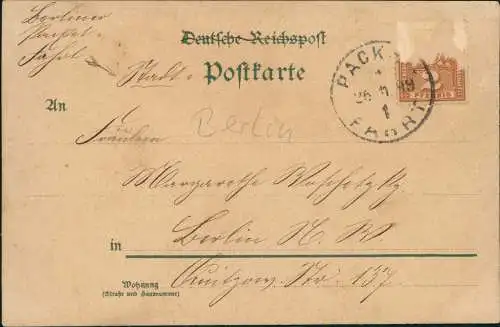 Berliner
Packet-
Fahrt
Deutsche Reichspost
Stadt-
Postkarte
PACK
26 11 99
1
FAHRT
2 PFENNIG
An
Berlin
Fräulein
Margarethe
in Berlin N. W.
Wohnung
(Straße und Hausnummer)
Quitzow-Str. 137